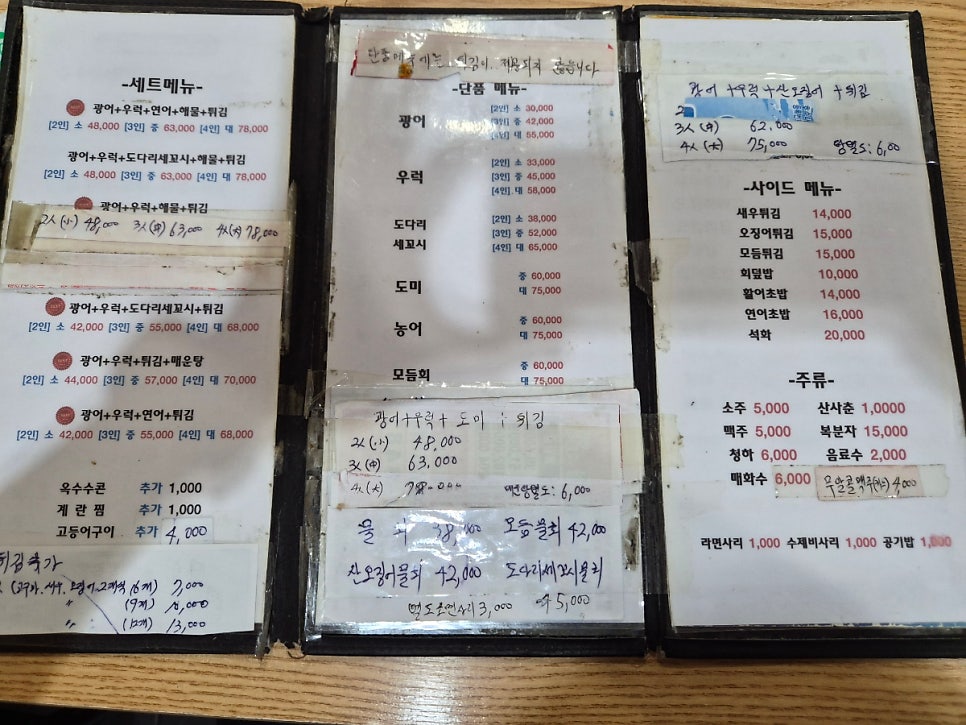 -세트메뉴-
광어+우럭+연어+해물+튀김
[2인] 소 48,000 [3인] 중 63,000 [4인] 대 78,000
광어+우럭+도다리세꼬시+해물+튀김
[2인] 소 48,000 [3인] 중 63,000 [4인] 대 78,000
광어+우럭+해물+튀김
2人(小) 48,000 3人(中) 63,000 4人(大) 78,000
광어+우럭+도다리세꼬시+튀김
[2인] 소 42,000 [3인] 중 55,000 [4인] 대 68,000
광어+우럭+튀김+매운탕
[2인] 소 44,000 [3인] 중 57,000 [4인] 대 70,000
광어+우럭+연어+튀김
[2인] 소 42,000 [3인] 중 55,000 [4인] 대 68,000
옥수수콘 추가 1,000
계 란 찜 추가 1,000
고등어구이 추가 4,000
튀김추가
(6개) 7,000
〃 (9개) 10,000
〃 (12개) 13,000
단품메뉴에는 튀김이 적용되지 않습니다
-단품 메뉴-
광어
[2인] 소 30,000
[3인] 중 42,000
[4인] 대 55,000
우럭
[2인] 소 33,000
[3인] 중 45,000
[4인] 대 58,000
도다리
세꼬시
[2인] 소 38,000
[3인] 중 52,000
[4인] 대 65,000
도미
중 60,000
대 75,000
농어
중 60,000
대 75,000
모듬회
중 60,000
대 75,000
광어+우럭+도미+튀김
2人(小) 48,000
3人(中) 63,000
4人(大) 78,000 6,000
물 회 38,000 모듬물회 42,000
산오징어물회 42,000 도다리세꼬시물회
3,000 45,000
광어+우럭+산오징어+튀김
3人(中) 62,000
4人(大) 75,000 6,00
-사이드 메뉴-
새우튀김 14,000
오징어튀김 15,000
모듬튀김 15,000
회덮밥 10,000
활어초밥 14,000
연어초밥 16,000
석화 20,000
-주류-
소주 5,000 산사춘 1,0000
맥주 5,000 복분자 15,000
청하 6,000 음료수 2,000
매화수 6,000 무알콜맥주(캔) 4,000
라면사리 1,000 수제비사리 1,000 공기밥 1,000